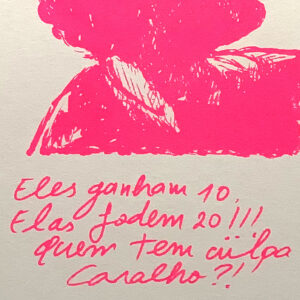 Eles ganham 10,
Elas fodem 20!!!
quem tem cülpa
Caralho?!